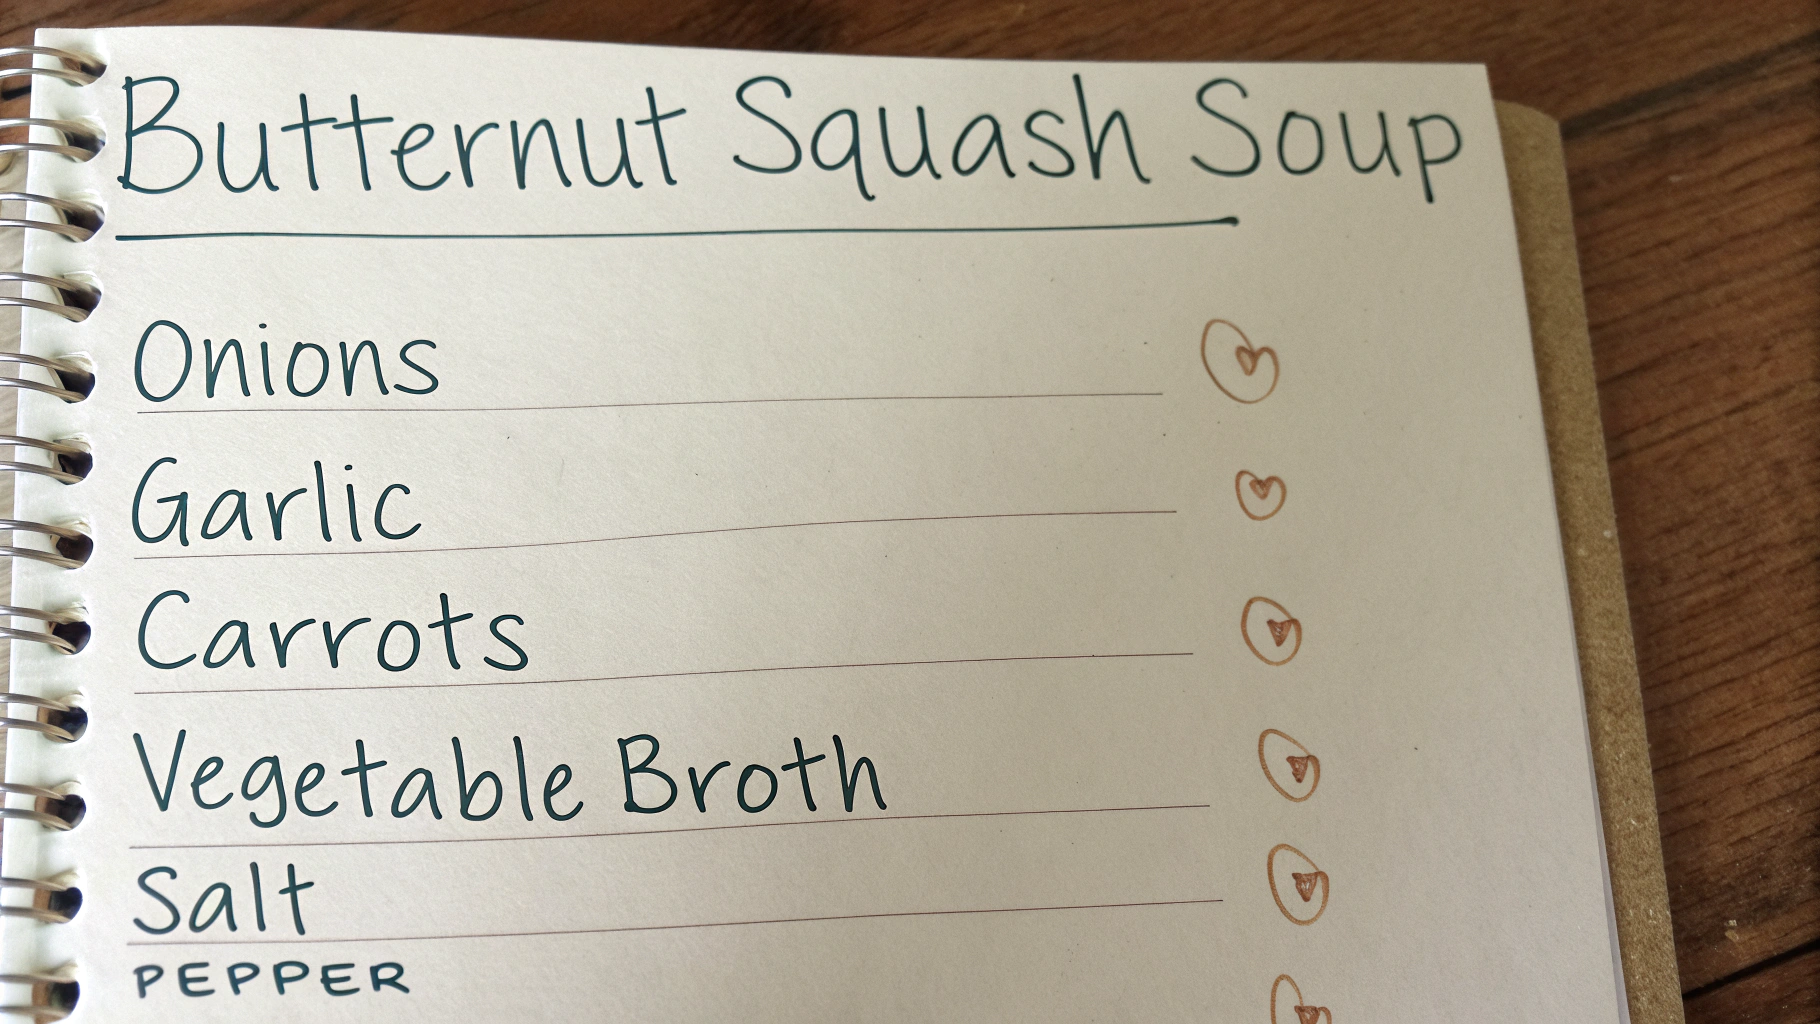 Butternut Squash Soup
Onions
Garlic
Carrots
Vegetable Broth
Salt
PEPPER